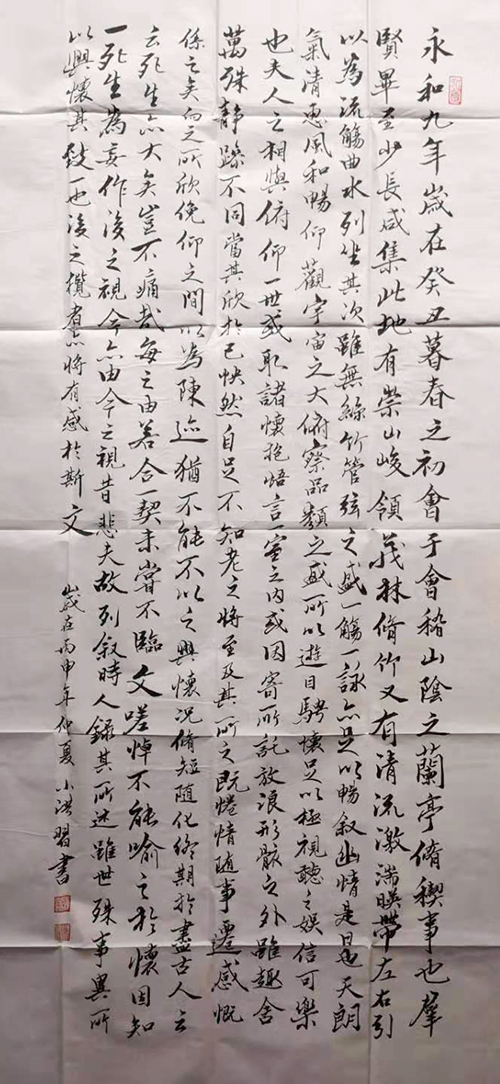 永和九年歲在癸丑暮春之初會于會稽山陰之蘭亭脩稧事也羣
賢畢至少長咸集此地有崇山峻領茂林脩竹又有清流激湍暎帶左右引
以為流觴曲水列坐其次雖無絲竹管弦之盛一觴一詠亦足以暢叙幽情是日也天朗
氣清惠風和暢仰觀宇宙之大俯察品類之盛所以遊目騁懷足以極視聽之娛信可樂
也夫人之相與俯仰一世或取諸懷抱悟言一室之內或因寄所託放浪形骸之外雖趣舍
萬殊靜躁不同當其欣於己怏然自足不知老之將至及其所之既惓情隨事遷感慨
係之矣向之所欣俛仰之間以為陳迹猶不能不以之興懷況脩短隨化終期於盡古人云
云死生亦大矣豈不痛哉每之由若合一契未嘗不臨文嗟悼不能喻之於懷因知
一死生為妄作後之視今亦由今之視昔悲夫故列叙時人錄其所述雖世殊事異所
以興懷其致一也後之攬者亦將有感於斯文
歲在丙申年仲夏 小洪習書